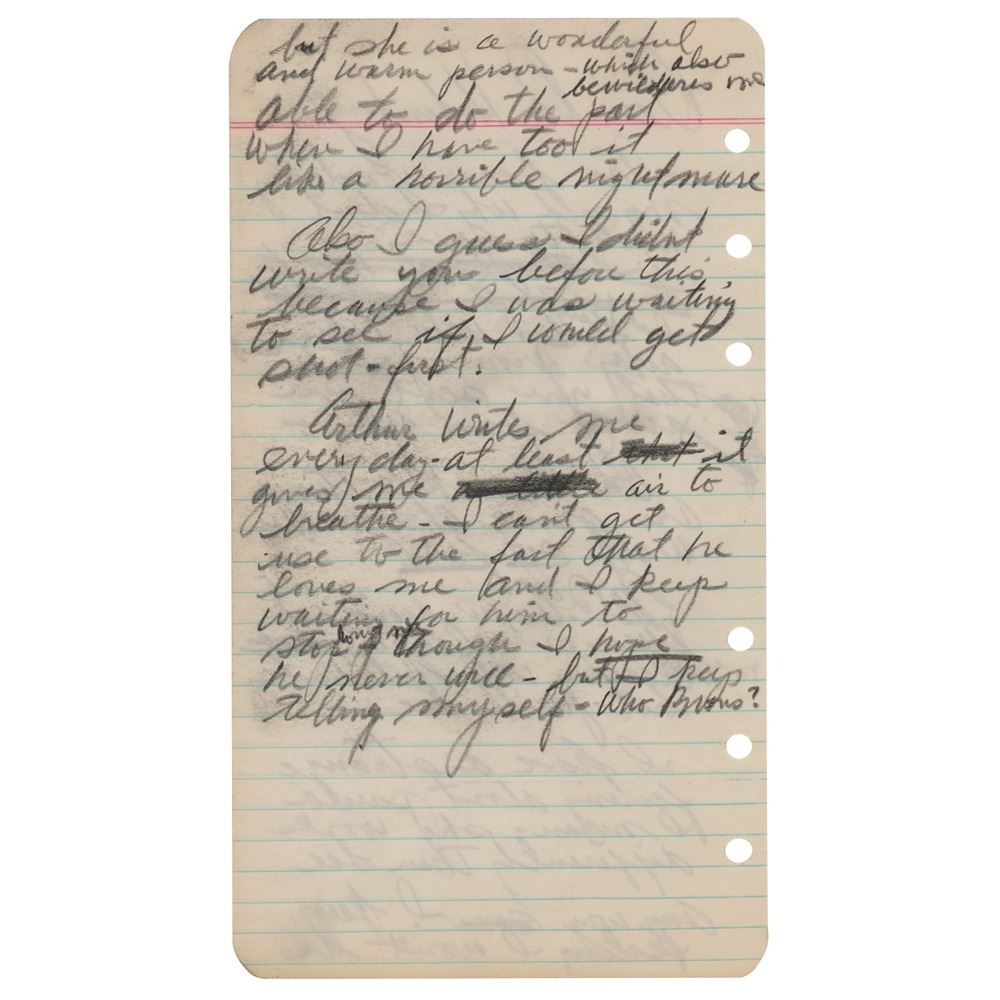 but she is a wonderful
and warm person – which also
bewilderes me
able to do the part
when I have too it
like a horrible nightmare
Also I guess I didnt
write you before this
because I was waiting
to see if I would get
shot – first.
Arthur writes me
every day – at least it
gives me a little air to
breathe – I can't get
use to the fact that he
loves me and I keep
waiting for him to
stop loving me though I hope
he never will – but I keep
telling myself – who knows?